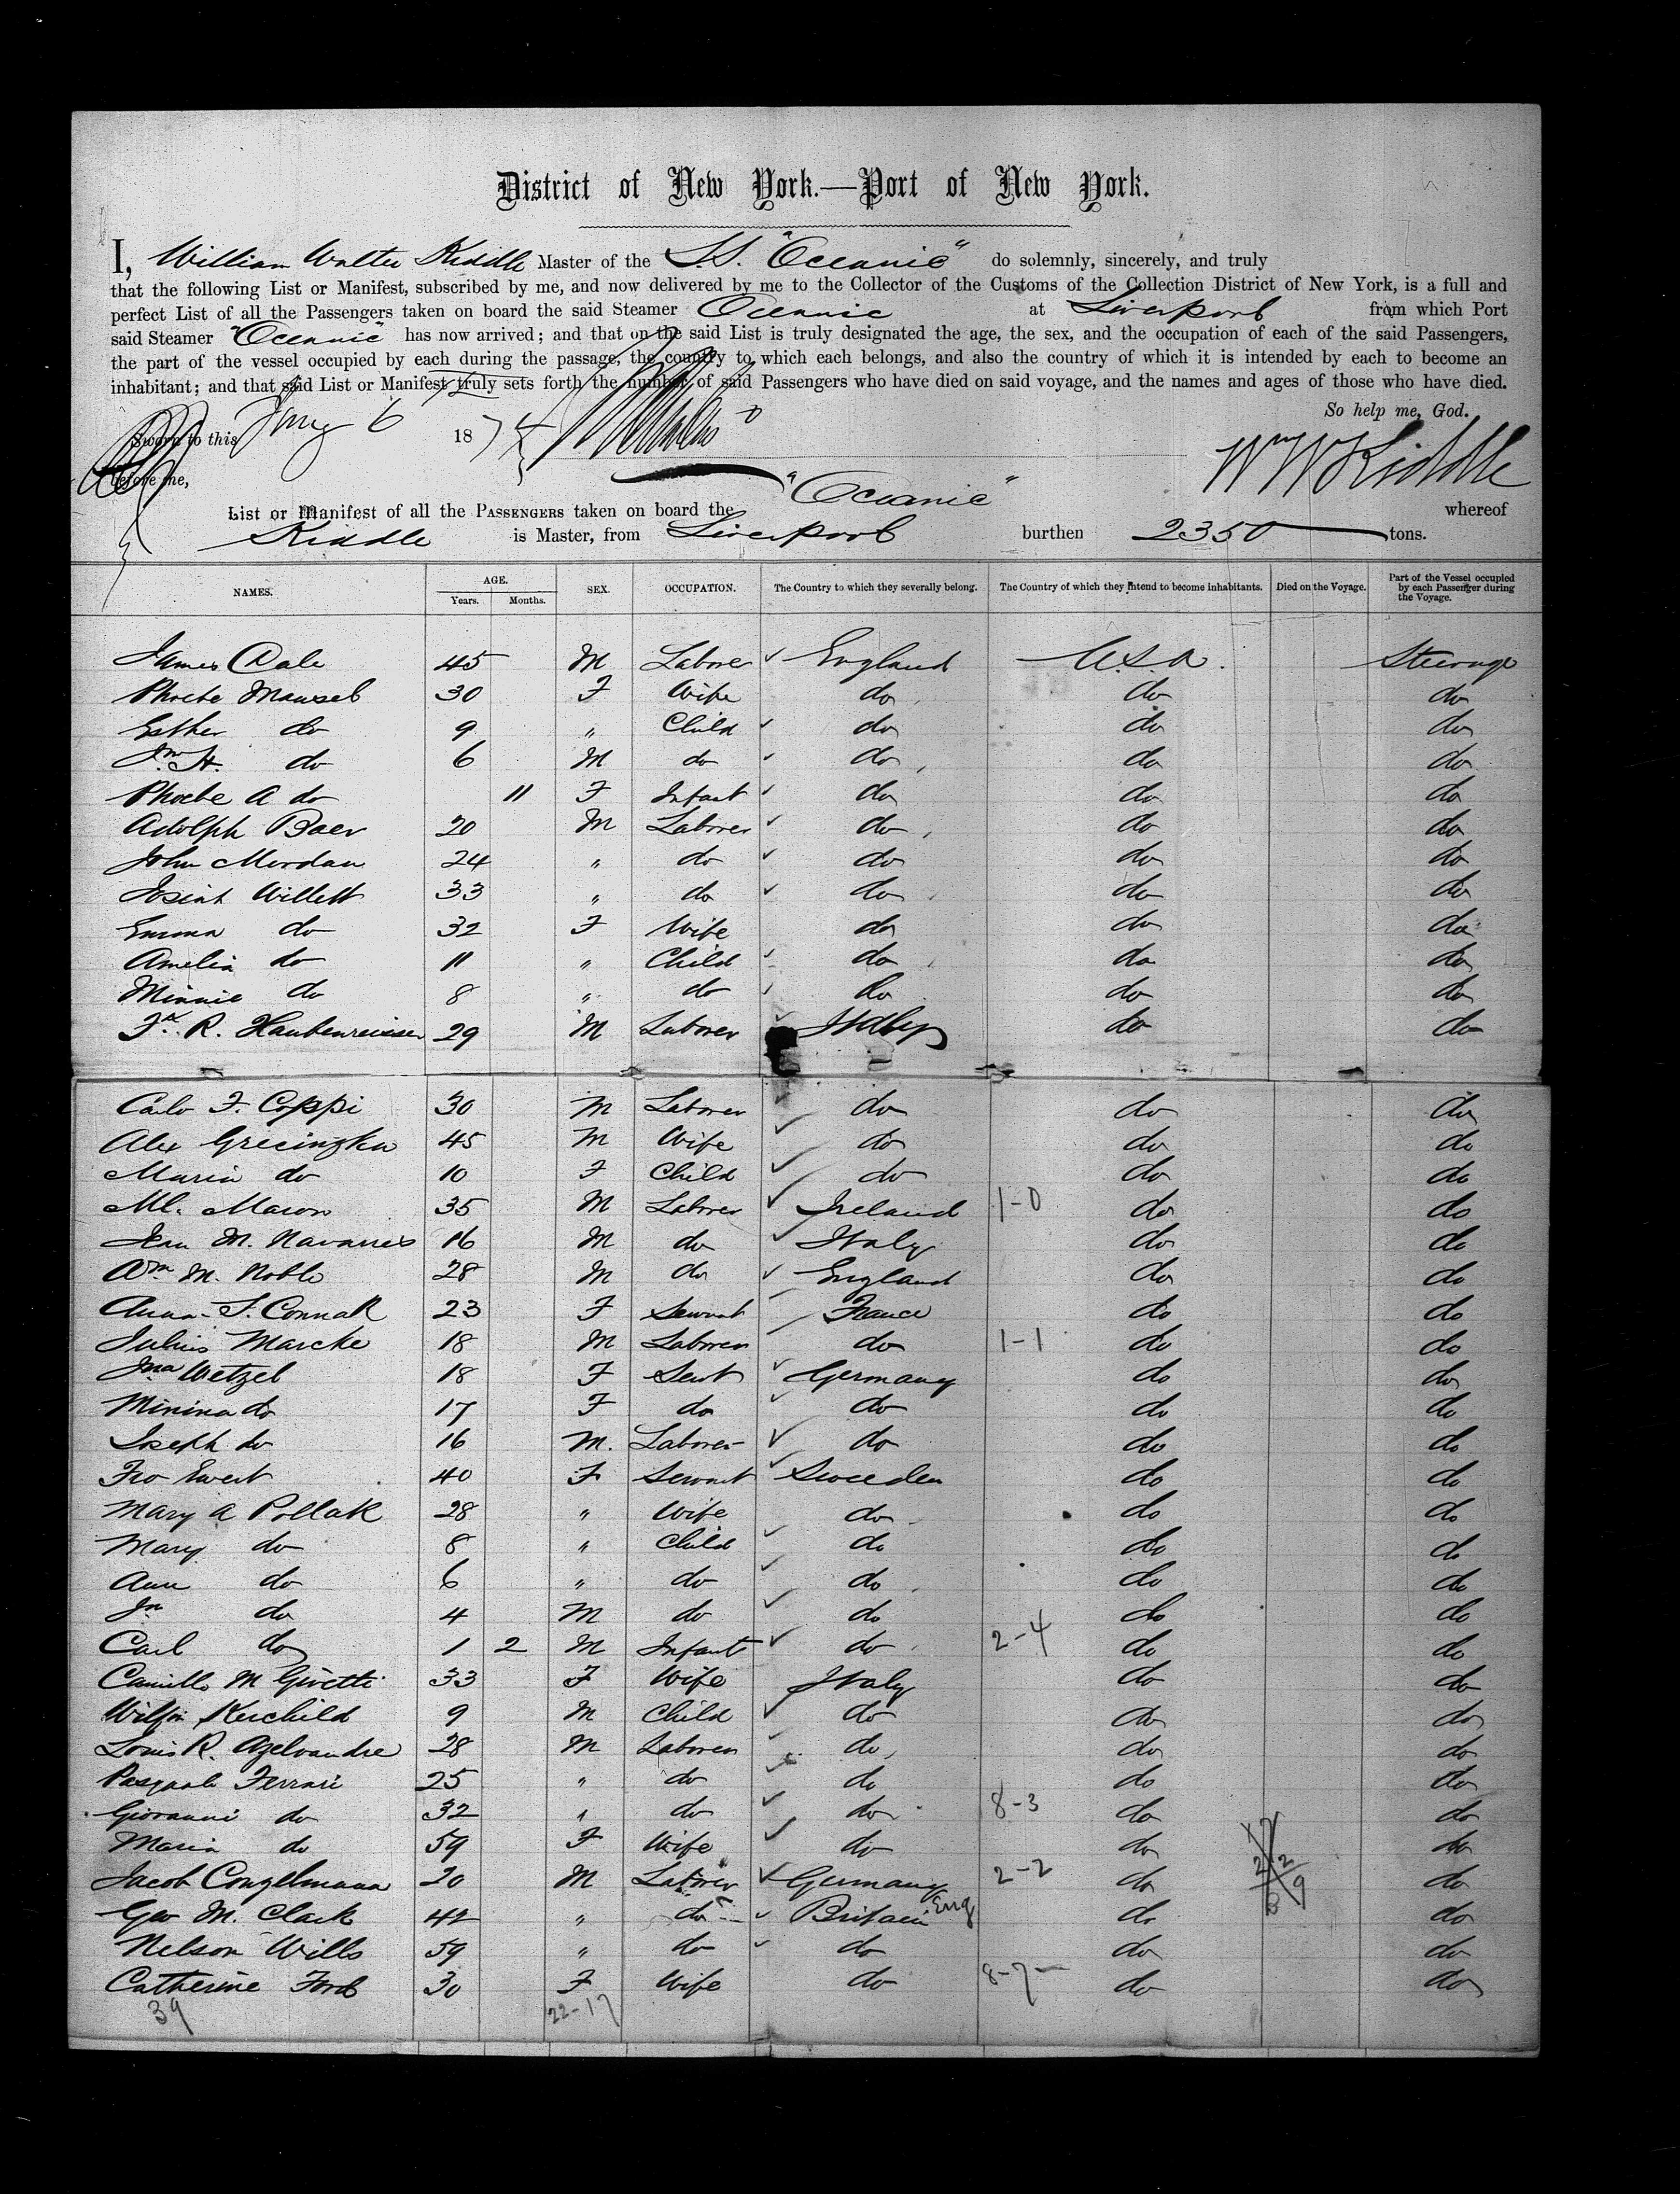 District of New York.—Port of New York.
I, William Walter Kiddle Master of the S.S. "Oceanic" do solemnly, sincerely, and truly
that the following List or Manifest, subscribed by me, and now delivered by me to the Collector of the Customs of the Collection District of New York, is a full and
perfect List of all the Passengers taken on board the said Steamer Oceanic at Liverpool from which Port
said Steamer "Oceanic" has now arrived; and that on the said List is truly designated the age, the sex, and the occupation of each of the said Passengers,
the part of the vessel occupied by each during the passage, the country to which each belongs, and also the country of which it is intended by each to become an
inhabitant; and that said List or Manifest truly sets forth the number of said Passengers who have died on said voyage, and the names and ages of those who have died.
So help me, God.
Sworn to this Jany 6 1874
before me, Wm W Kiddle
List or Manifest of all the PASSENGERS taken on board the "Oceanic" whereof
Kiddle is Master, from Liverpool burthen 2350 tons.
NAMES. AGE. Years. Months. SEX. OCCUPATION. The Country to which they severally belong. The Country of which they intend to become inhabitants. Died on the Voyage. Part of the Vessel occupied by each Passenger during the Voyage.
James Dale 45 M Laborer England U.S.A. Steerage
Phoebe Mansel 30 F Wife do do do
Esther do 9 " Child do do do
Jno H. do 6 M do do do do
Phoebe A do 11 F Infant do do do
Adolph Baer 20 M Laborer do do do
John Mordan 24 " do do do do
Josiah Willett 33 " do do do do
Emma do 32 F Wife do do do
Amelia do 11 " Child do do do
Minnie do 8 " do do do do
Fk. R. Haubenreisser 29 M Laborer Italy do do
Carlo F. Coppi 30 M Laborer do do do
Alex Grecingka 45 M Wife do do do
Maria do 10 F Child do do do
Ml. Macon 35 M Laborer Ireland 1-0 do do
Jean M. Navarres 16 M do Italy do do
Wm M. Noble 28 M do England do do
Anna S. Connak 23 F Servant France do do
Julius Marcke 18 M Laborer do 1-1 do do
Jna Wetzel 18 F Sevt Germany do do
Minina do 17 F do do do do
Joseph do 16 M. Laborer do do do
Fro Ewert 40 F Servant Sweeden do do
Mary A Pollak 28 " Wife do do do
Mary do 8 " Child do do do
Ann do 6 " do do do do
Jn do 4 M do do do do
Carl do 1 2 M Infant do 2-4 do do
Camillo M Givetti 33 F Wife Italy do do
Wilfn Kerchild 9 M Child do do do
Louis R. Azelvandre 28 M Laborer do do do
Pasquale Ferrari 25 " do do do do
Giovanni do 32 " do do 8-3 do do
Maria do 59 F Wife do do do
Jacob Conzelmann 20 M Laborer Germany 2-2 do do
Geo M. Clark 42 " do Britain Eng do do
Nelson Wills 59 " do do do do
Catherine Ford 30 F Wife do 8-7 do do
39 22-17